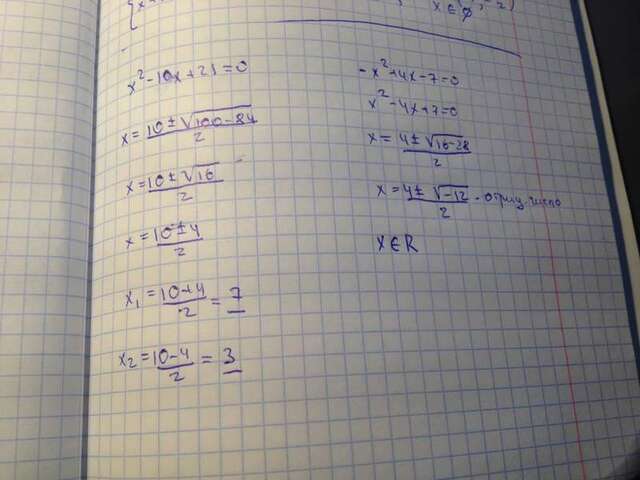 x² - 10x + 21 = 0
x = 10 ± √100 - 84 / 2
x = 10 ± √16 / 2
x = 10 ± 4 / 2
x₁ = 10 + 4 / 2 = 7
x₂ = 10 - 4 / 2 = 3
- x² + 4x - 7 = 0
x² - 4x + 7 = 0
x = 4 ± √16 - 28 / 2
x = 4 ± √-12 / 2 - отриц. число
x ∈ R